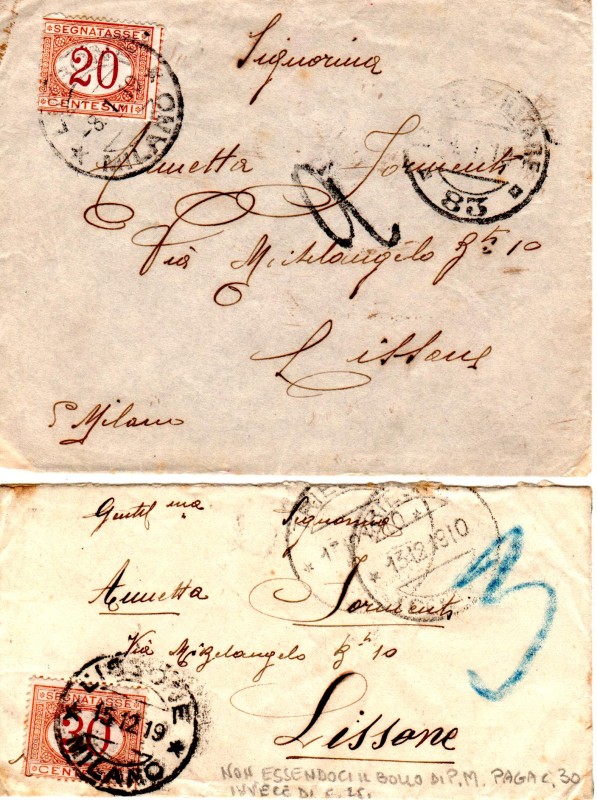 SEGNATASSE
20
CENTESIMI
MILANO
Signorina
83
Annetta Tormenti
Via Michelangelo 10
Lissone
P Milano
Gentil ma Signorina
13.12.19
Annetta Tormenti
Via Migelangelo 10
Lissone
SEGNATASSE
30
LISSONE
15.12.19
MILANO
NON ESSENDOCI IL BOLLO DI P.M. PAGA C. 30
INVECE DI C. 25.